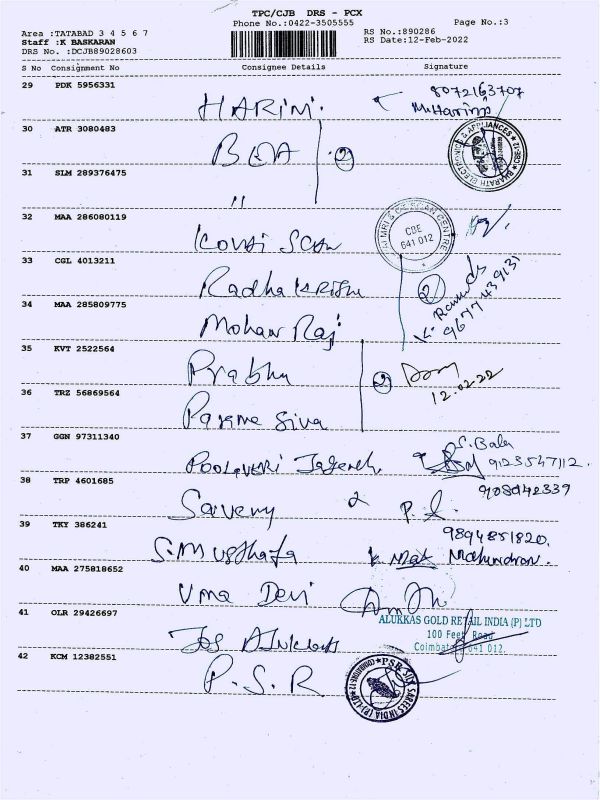 TPC/CJB DRS - PCX
Phone No.:0422-3505555 Page No.:3
Area :TATABAD 3 4 5 6 7
Staff :K BASKARAN
DRS No. :DCJB89028603
RS No.:890286
RS Date:12-Feb-2022
S No Consignment No Consignee Details Signature
29 PDK 5956331
HARIM. 8072163707
30 ATR 3080483
2
BHARATH ELECTRONICS & APPLIANCES
31 SLM 289376475
"
32 MAA 286080119
KOVAI SCAN
MRI & CT SCAN CENTRE
CBE
641 012
33 CGL 4013211
Radha Krishn 2
9677439131
34 MAA 285809775
Mohan Raj
35 KVT 2522564
Prabhu 2
12.02.22
36 TRZ 56869564
Parama Siva
37 GGN 97311340
S. Bala
9123547112.
38 TRP 4601685
Sarveny 2 P.
39 TKY 386241
S. Musthafa 9894851820.
40 MAA 275818652
Uma Devi
41 OLR 29426697
Jos Alukkas
ALUKKAS GOLD RETAIL INDIA (P) LTD
100 Feet Road
Coimbatore 641 012.
42 KCM 12382551
P.S.R
PSR SILK SAREES INDIA (P) LTD